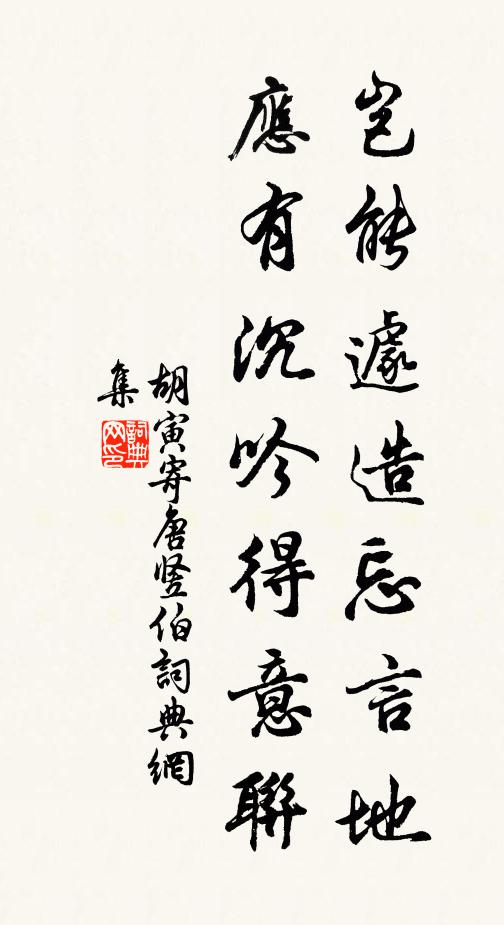 豈能遽造忘言地
應有沉吟得意聯
胡寅寄唐竖伯詞典網
集
詞典网印